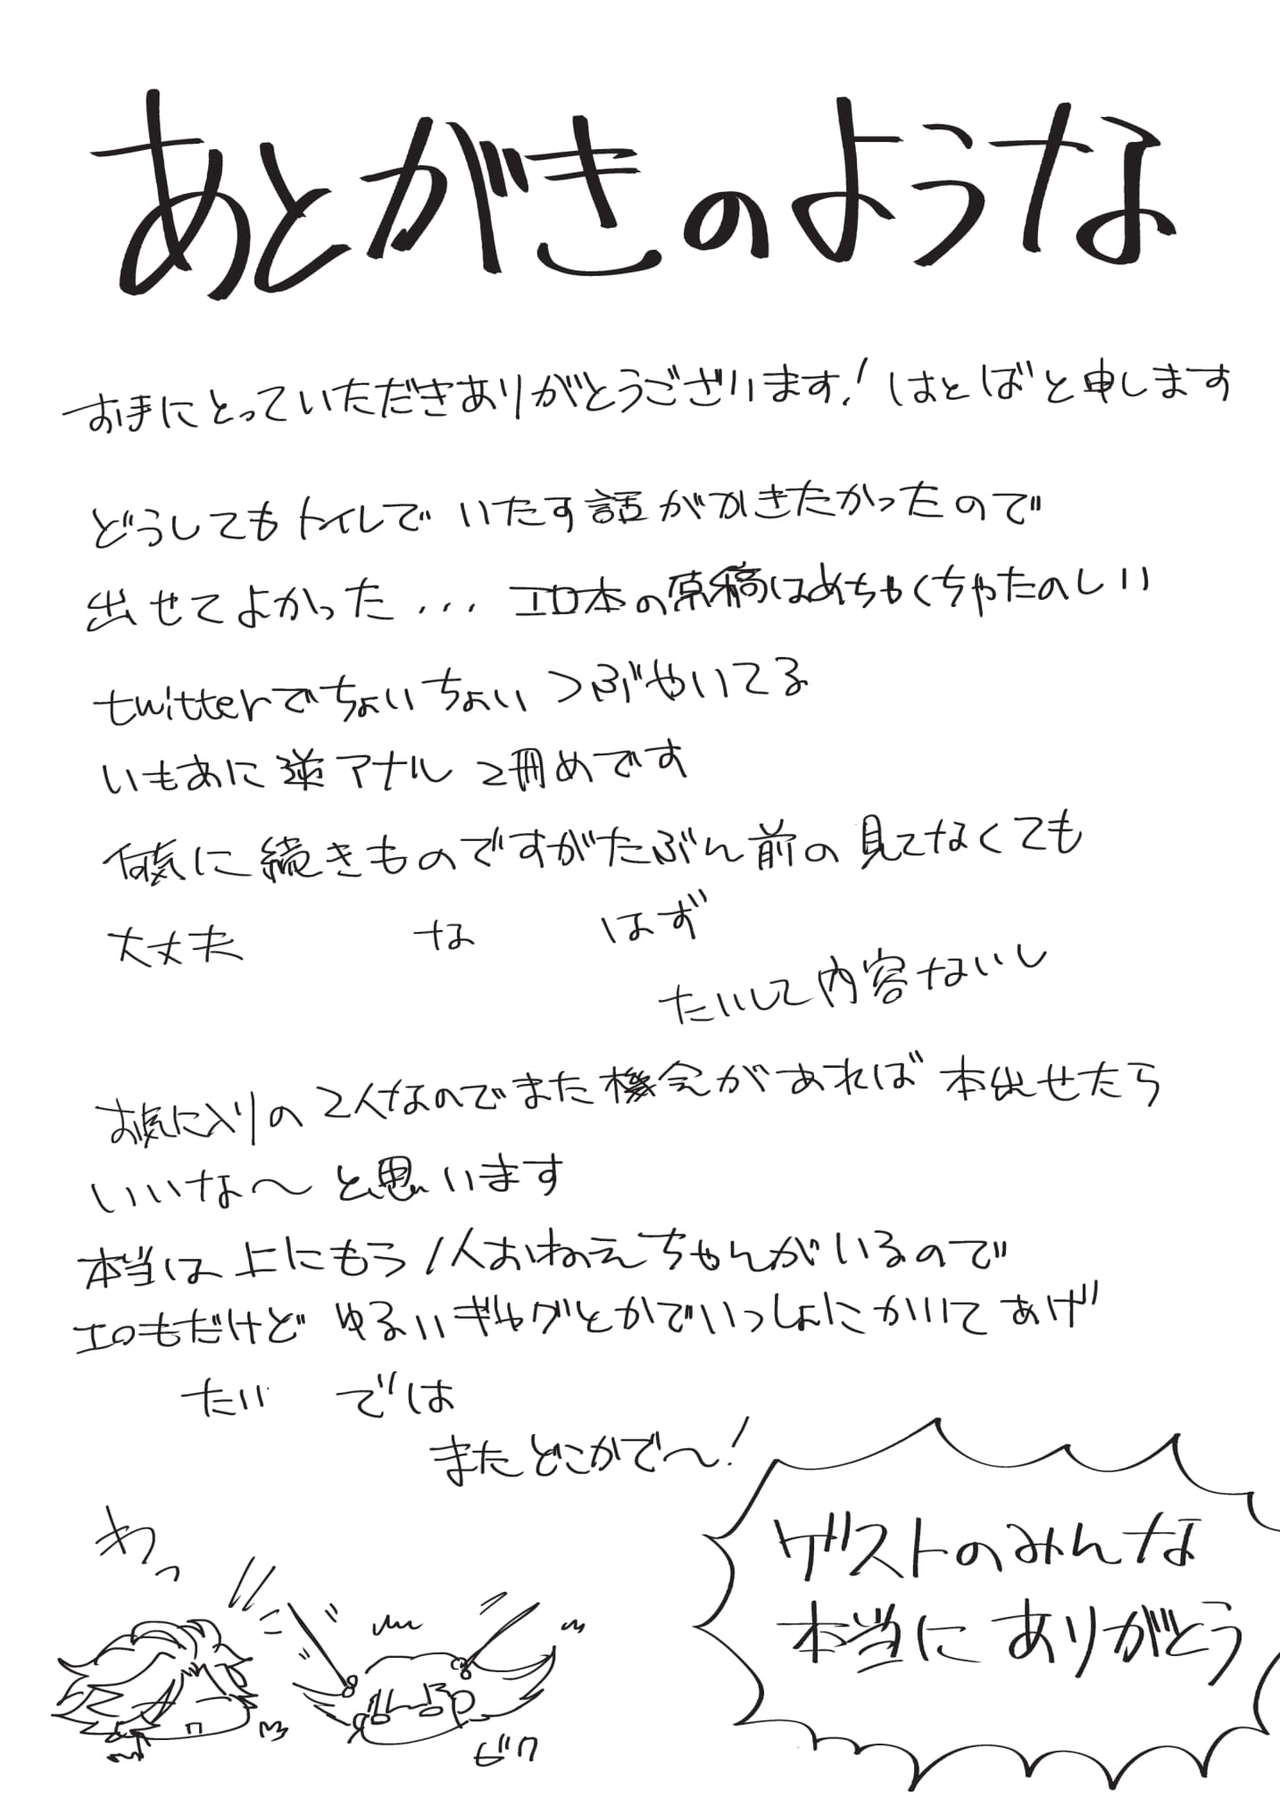 あとがきのような
お手にとっていただきありがとうございます！ はとばと申します
どうしてもトイレでいたす話がかきたかったので
出せてよかった... エロ本の原稿はめちゃくちゃたのしい
twitterでちょいちょいつぶやいてる
いもあに逆アナル2冊めです
何気に続きものですがたぶん前の見てなくても
大丈夫 な はず
たいして内容ないし
お気に入りの2人なのでまた機会があれば本出せたら
いいな〜と思います
本当は上にもう1人おねえちゃんがいるので
エロもだけどゆるいギャグとかでいっしょにかいてあげ
たい では
またどこかで〜！
わっ
ゲストのみんな
本当にありがとう
ビク